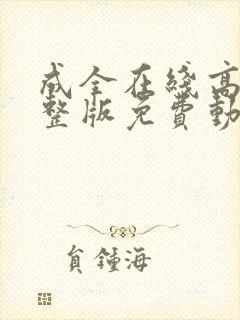 成全在线高
整版免費動
負鍾海